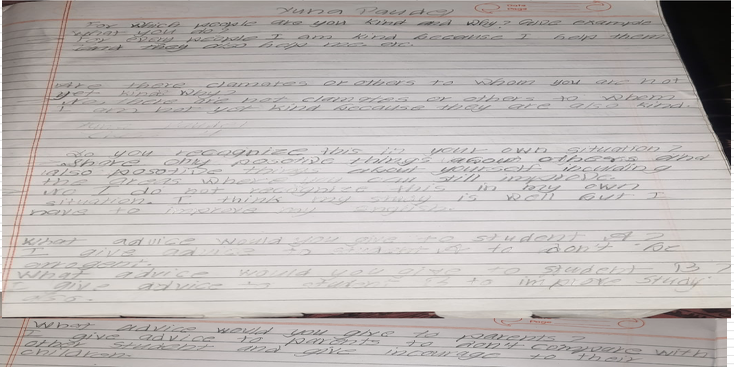 Yuna Paudel
For which people are you kind and why? Give example
what you do?
For every people I am kind because I help them
and they also help me. etc.
Are there clamates or others to whom you are not
yet kind why?
No, there are not clamates or others to whom
I am not yet kind because they are also kind.
Do you recognize this in your own situation?
Share only posotive things about others and
also posotive things about yourself including
the areas where you can still improve.
No I do not recognize this in my own
situation. I think my study is well but I
have to improve my english.
What advice would you give to student A?
I give advice to student to don't be
What advice would you give to student B?
I give advice to student to improve study
also.
What advice would you give to parents?
I give advice to parents to don't compare with
other student and give incourage to their
children